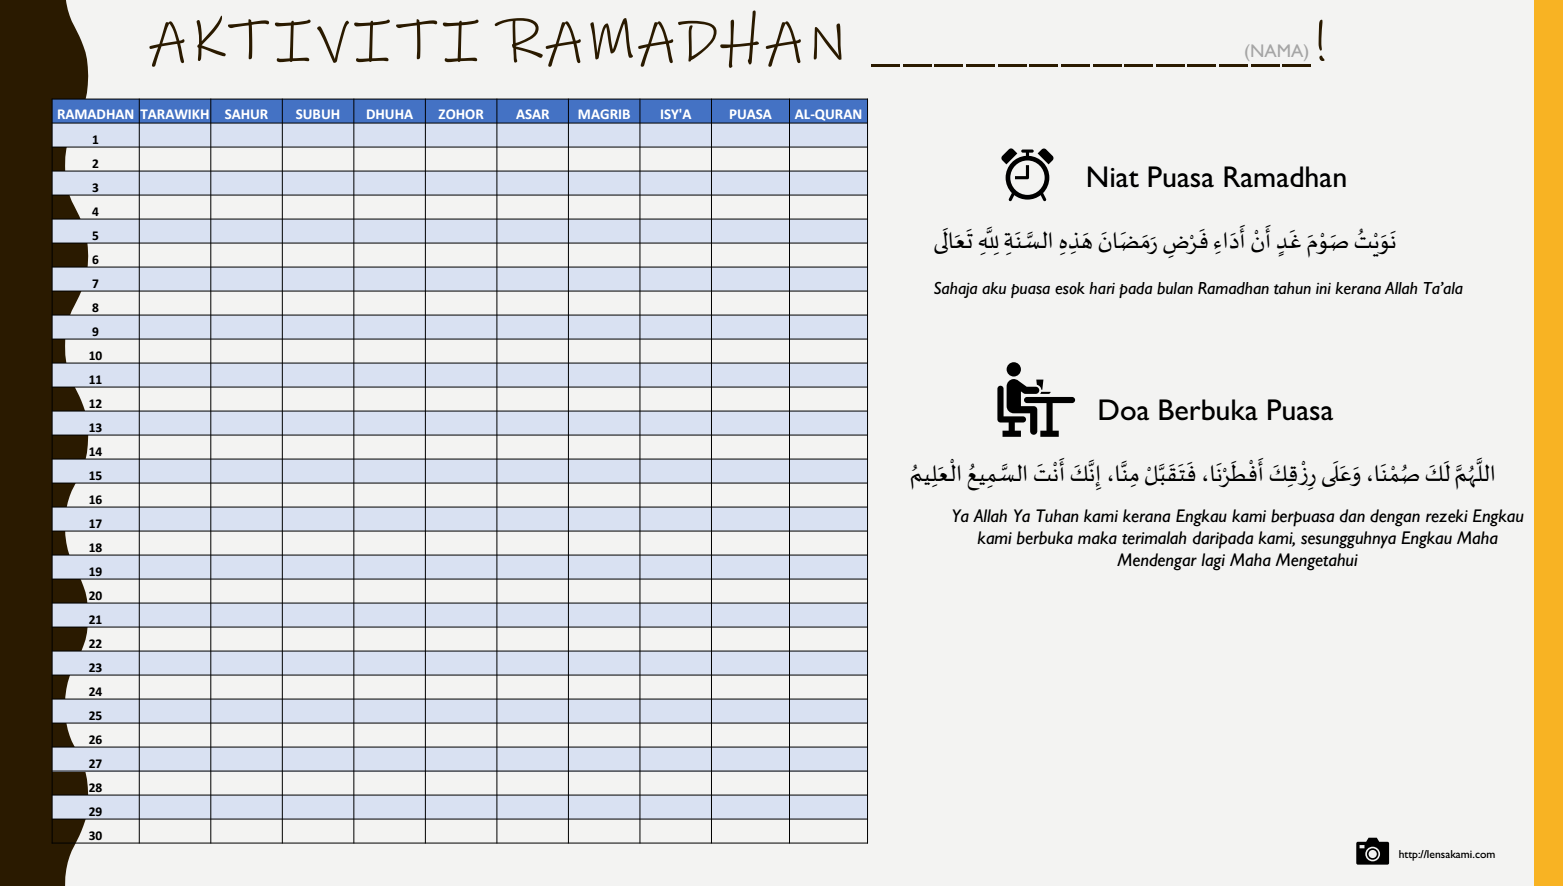 AKTIVITI RAMADHAN ______________ (NAMA) !
RAMADHAN TARAWIKH SAHUR SUBUH DHUHA ZOHOR ASAR MAGRIB ISY'A PUASA AL-QURAN
1
2
3
4
5
6
7
8
9
10
11
12
13
14
15
16
17
18
19
20
21
22
23
24
25
26
27
28
29
30
Niat Puasa Ramadhan
نَوَيْتُ صَوْمَ غَدٍ أَنْ أَدَاءِ فَرْضِ رَمَضَانَ هَذِهِ السَّنَةِ لِلَّهِ تَعَالَى
Sahaja aku puasa esok hari pada bulan Ramadhan tahun ini kerana Allah Ta’ala
Doa Berbuka Puasa
اللَّهُمَّ لَكَ صُمْنَا، وَعَلَى رِزْقِكَ أَفْطَرْنَا، فَتَقَبَّلْ مِنَّا، إِنَّكَ أَنْتَ السَّمِيعُ الْعَلِيمُ
Ya Allah Ya Tuhan kami kerana Engkau kami berpuasa dan dengan rezeki Engkau
kami berbuka maka terimalah daripada kami, sesungguhnya Engkau Maha
Mendengar lagi Maha Mengetahui
http://lensakami.com